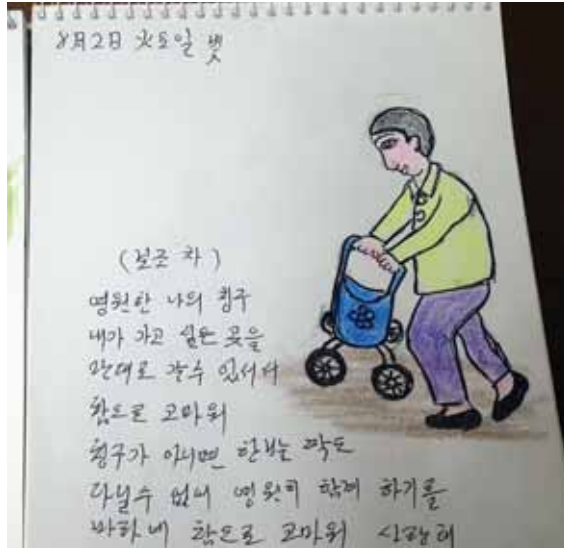 8月2日 火요일 볏
(보조 차)
영원한 나의 칭구
내가 가고 싶은 곳을
만대로 갈수 있서서
참으로 고마워
칭구가 아니면 한발 딱도
다닐수 없서 영원히 함께 하기를
바라네 참으로 고마워 사랑해